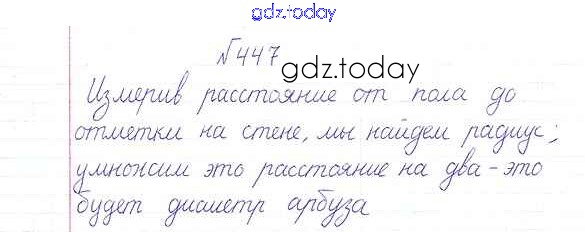 gdz.today
№447
gdz.today
Измерив расстояние от пола до
отметки на стене, мы найдем радиус;
умножим это расстояние на два - это
будет диаметр арбуза